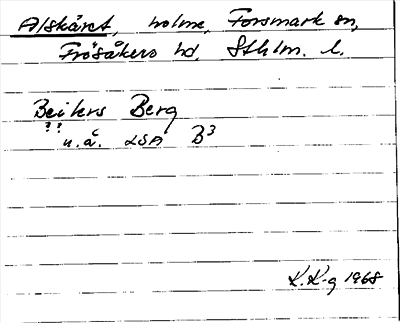 Alskäret, holme, Forsmark sn,
Frösåkers hd, Sthlm. l.
Beikers Berg
??
u.å. LSA B3
K.K-g 1968